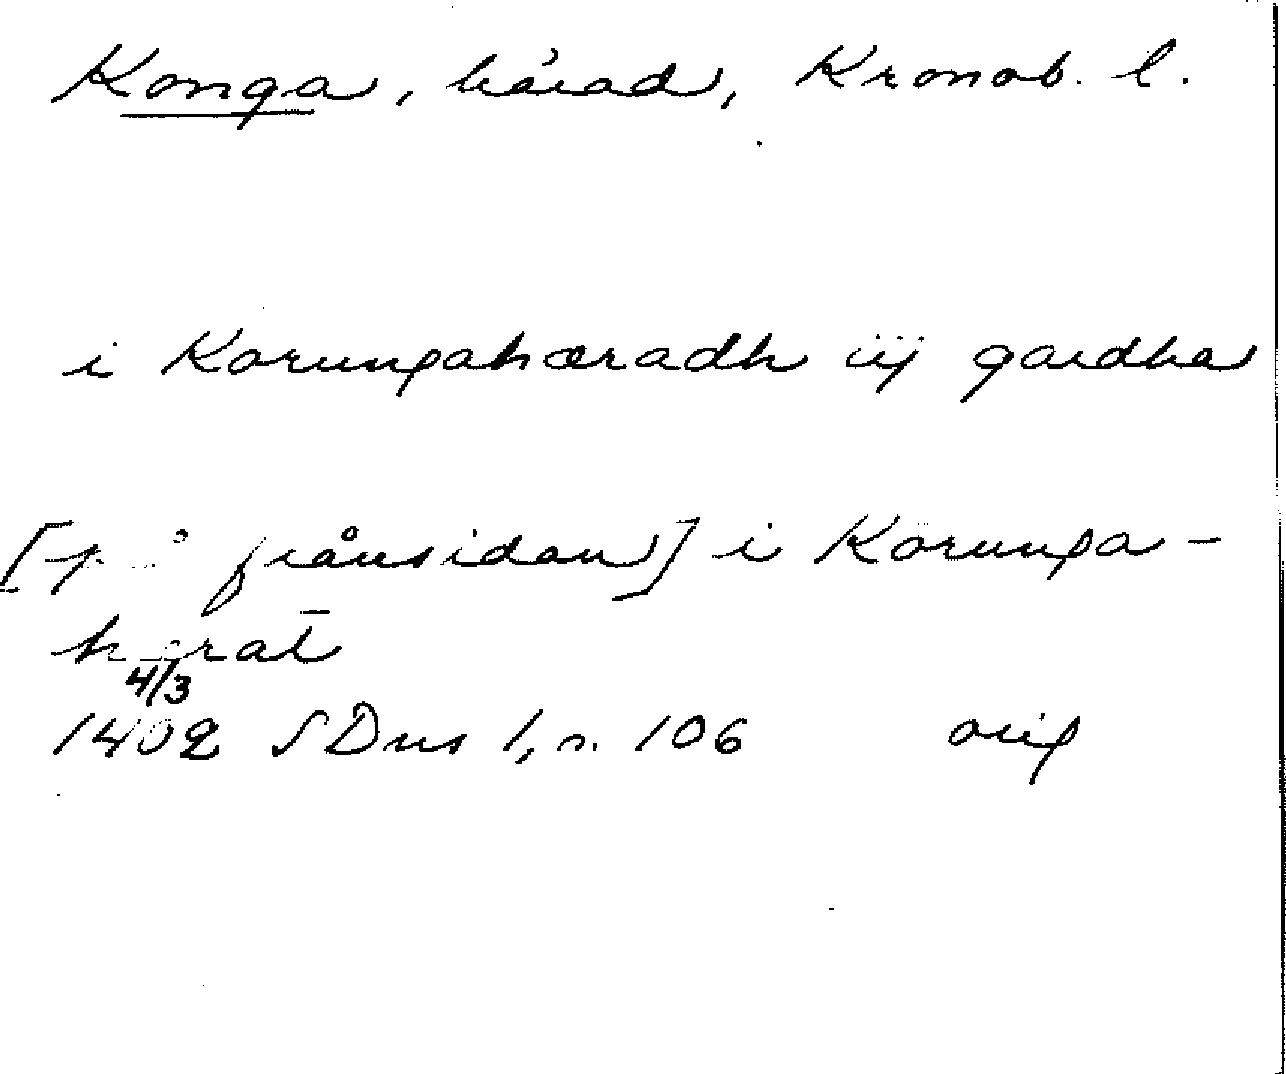 Konga, härad, Kronob. l.
i Korungahæradh iij gardha
[på frånsidan] i Korunga-
hærat̄
4/3
1402 SDns 1, n. 106 orig